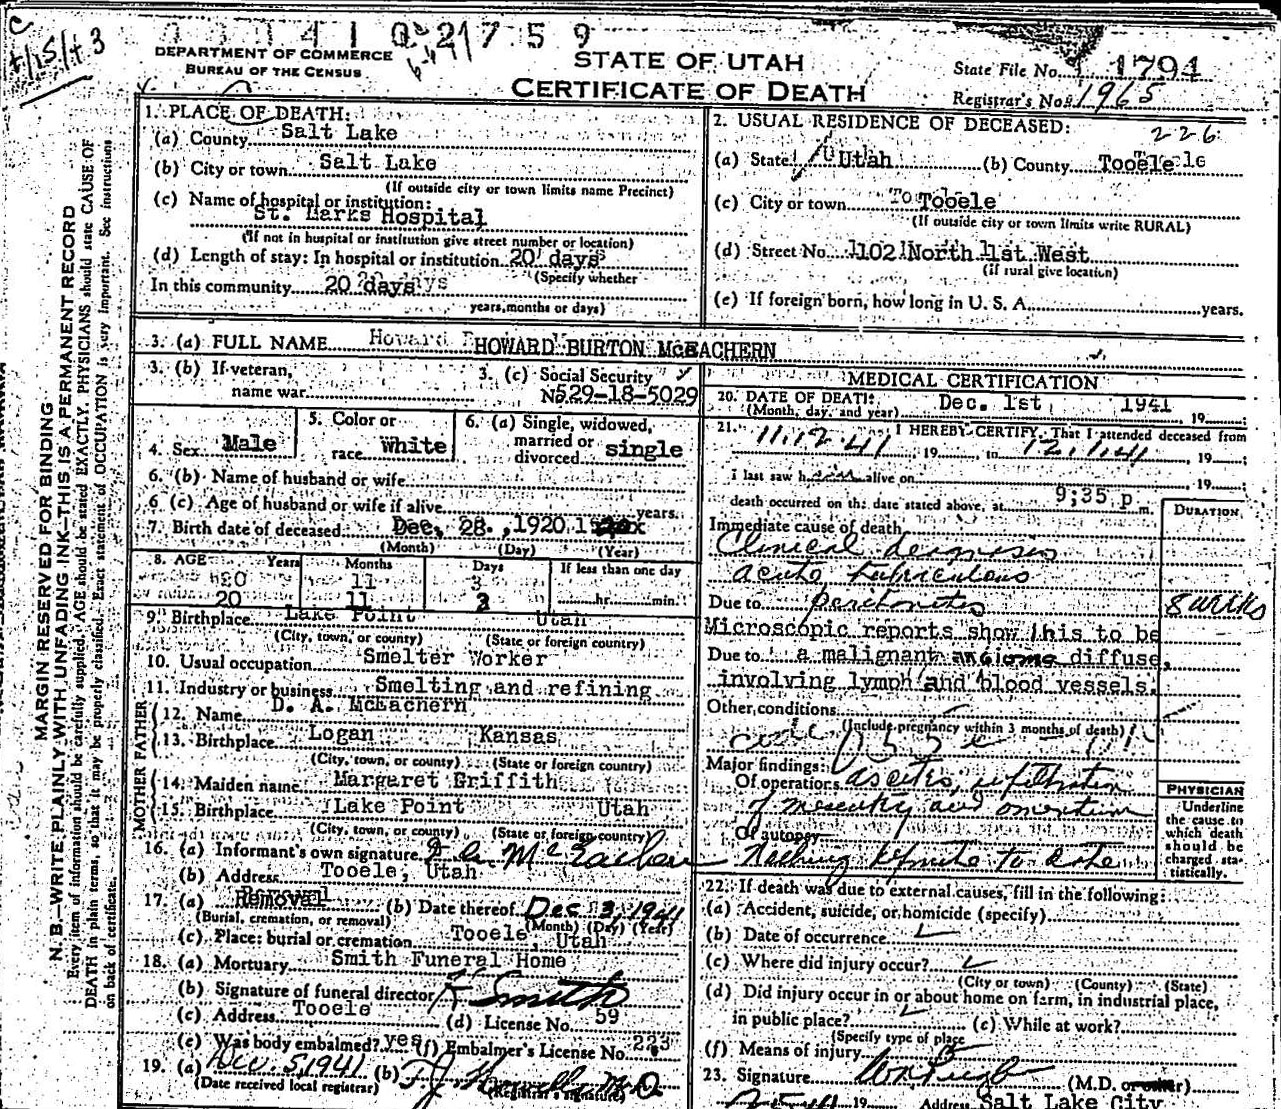 0 0 0 4 1 0 2 1 7 5 9
DEPARTMENT OF COMMERCE
BUREAU OF THE CENSUS
STATE OF UTAH
CERTIFICATE OF DEATH
State File No. 1794
Registrar's No. 1965
MARGIN RESERVED FOR BINDING
N. B.—WRITE PLAINLY WITH UNFADING INK—THIS IS A PERMANENT RECORD
Every item of information should be carefully supplied. AGE should be stated EXACTLY. PHYSICIANS should state CAUSE OF
DEATH in plain terms, so that it may be properly classified. Exact statement of OCCUPATION is very important. See instructions
on back of certificate.
1. PLACE OF DEATH:
(a) County Salt Lake
(b) City or town Salt Lake
(If outside city or town limits name Precinct)
(c) Name of hospital or institution:
St. Marks Hospital
(If not in hospital or institution give street number or location)
(d) Length of stay: In hospital or institution 20 days
(Specify whether
In this community 20 days
years, months or days)
2. USUAL RESIDENCE OF DECEASED:
226
(a) State Utah (b) County Tooele
(c) City or town Tooele
(If outside city or town limits write RURAL)
(d) Street No. 102 North 1st West
(If rural give location)
(e) If foreign born, how long in U. S. A. years.
3. (a) FULL NAME HOWARD BURTON McEACHERN
3. (b) If veteran,
name war
3. (c) Social Security
No. 529-18-5029
4. Sex Male
5. Color or
race White
6. (a) Single, widowed,
married or
divorced single
6. (b) Name of husband or wife
6 (c) Age of husband or wife if alive years.
7. Birth date of deceased Dec. 28. ,1920
(Month) (Day) (Year)
8. AGE Years Months Days If less than one day
20 11 3
20 11 3 hr. min.
9. Birthplace Lake Point Utah
(City, town, or county) (State or foreign country)
10. Usual occupation Smelter Worker
11. Industry or business Smelting and refining
FATHER
12. Name D. A. McEachern
13. Birthplace Logan Kansas
(City, town, or county) (State or foreign country)
MOTHER
14. Maiden name Margaret Griffith
15. Birthplace Lake Point Utah
(City, town, or county) (State or foreign country)
16. (a) Informant's own signature D. A. McEachern
(b) Address Tooele, Utah
17. (a) Removal (b) Date thereof Dec 3, 1941
(Burial, cremation, or removal) (Month) (Day) (Year)
(c) Place: burial or cremation Tooele, Utah
18. (a) Mortuary Smith Funeral Home
(b) Signature of funeral director Smith
(c) Address Tooele (d) License No. 59
(e) Was body embalmed? yes (f) Embalmer's License No. 223
19. (a) Dec. 5, 1941 (b) M.D.
(Date received local registrar) (Registrar's signature)
MEDICAL CERTIFICATION
20. DATE OF DEATH: Dec. 1st 1941
(Month, day, and year) , 19
21. I HEREBY CERTIFY, That I attended deceased from
11.12 41 , 19 to 12.1.41 , 19 ;
I last saw him alive on , 19 ;
death occurred on the date stated above, at 9;35 p m.
DURATION
Immediate cause of death
Clinical diagnosis
acute tuberculous
Due to peritonitis 8 weeks
Microscopic reports show this to be
Due to a malignant angioma diffuse,
involving lymph and blood vessels.
Other conditions
(Include pregnancy within 3 months of death)
Major findings:
Of operations ascites, infiltration
of mesentery and omentum
Of autopsy
Nothing definite to date
PHYSICIAN
Underline
the cause to
which death
should be
charged sta-
tistically.
22. If death was due to external causes, fill in the following:
(a) Accident, suicide, or homicide (specify)
(b) Date of occurrence
(c) Where did injury occur?
(City or town) (County) (State)
(d) Did injury occur in or about home on farm, in industrial place,
in public place? (e) While at work?
(Specify type of place
(f) Means of injury
23. Signature (M.D. or other)
19 Address Salt Lake City